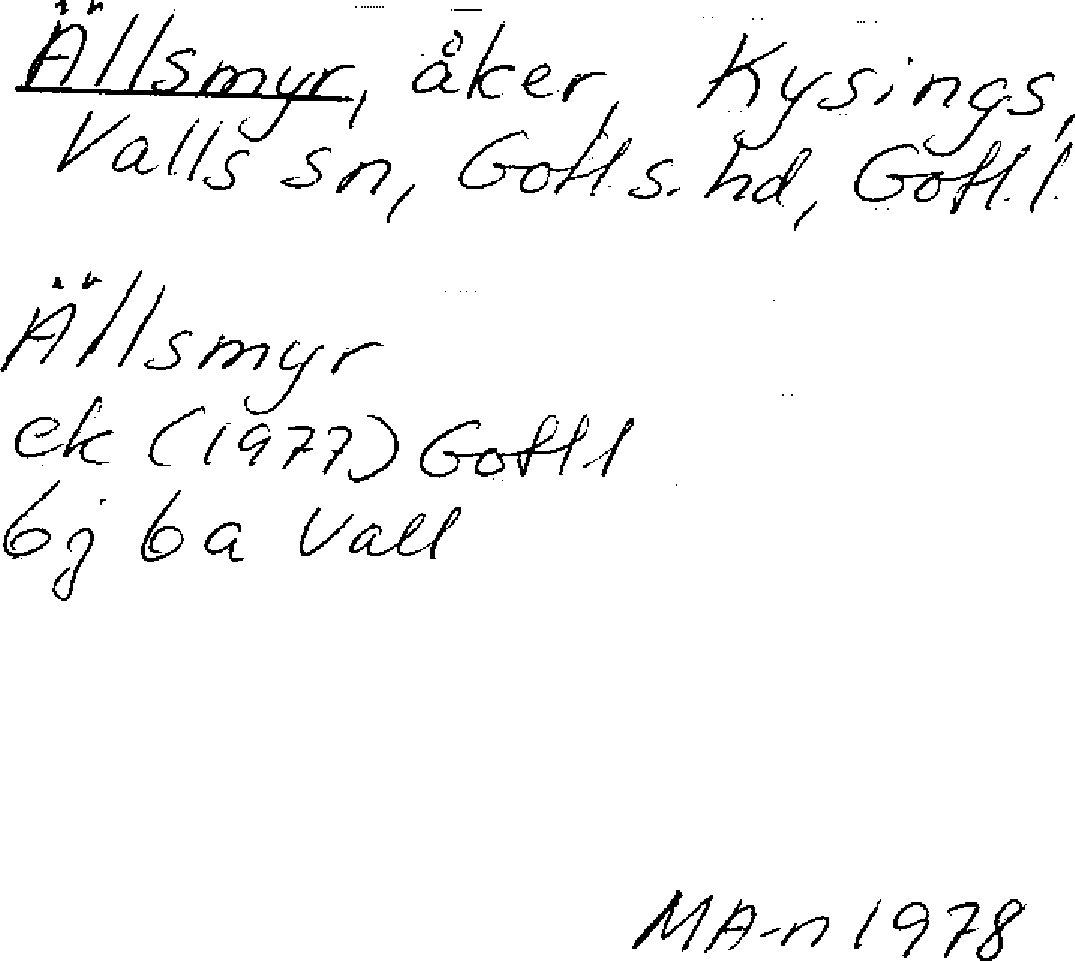 Ällsmyr, åker, Kysings,
Valls sn, Gotl. s. hd, Gotl. l.
Ällsmyr
ek (1977) Gotl l
6j 6a Vall
MA-n 1978